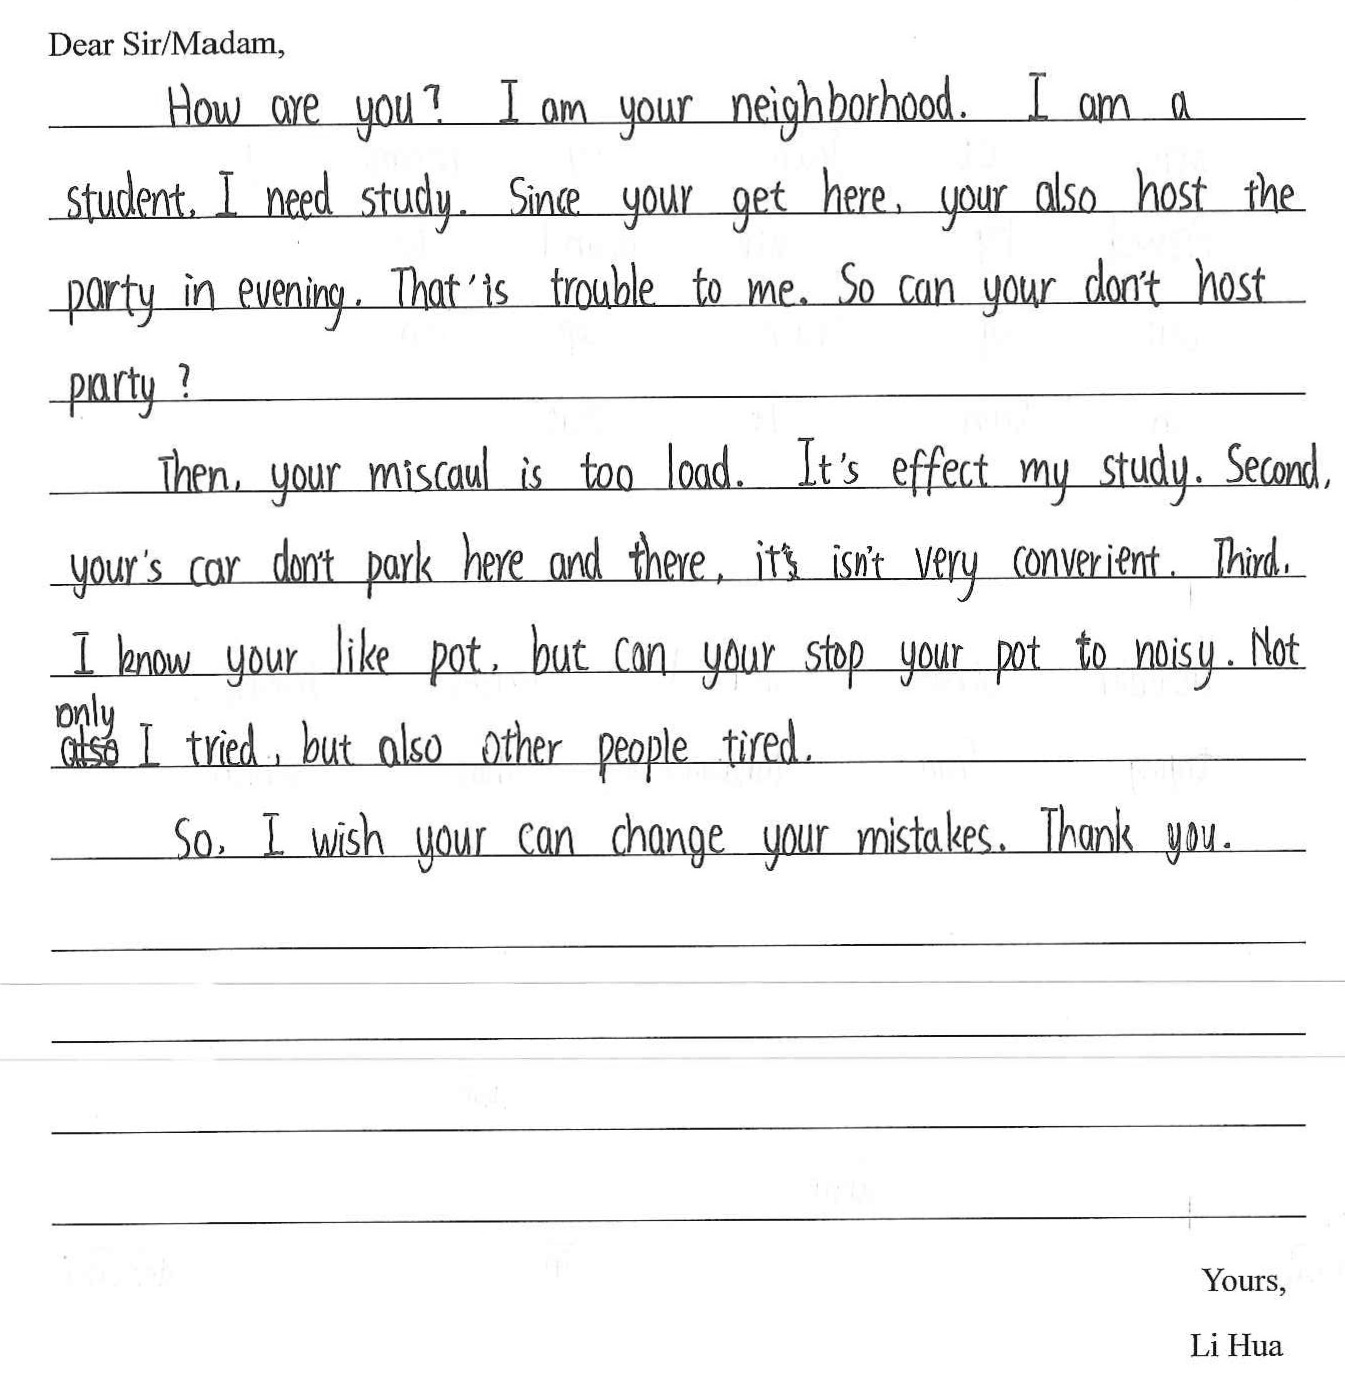 Dear Sir/Madam,
How are you? I am your neighborhood. I am a
student. I need study. Since your get here, your also host the
party in evening. That'is trouble to me. So can your don't host
party?
Then, your miscaul is too load. It's effect my study. Second,
your's car don't park here and there, it's isn't very converient. Third.
I know your like pot, but can your stop your pot to noisy. Not
only
also I tried, but also other people tired.
So, I wish your can change your mistakes. Thank you.
Yours,
Li Hua